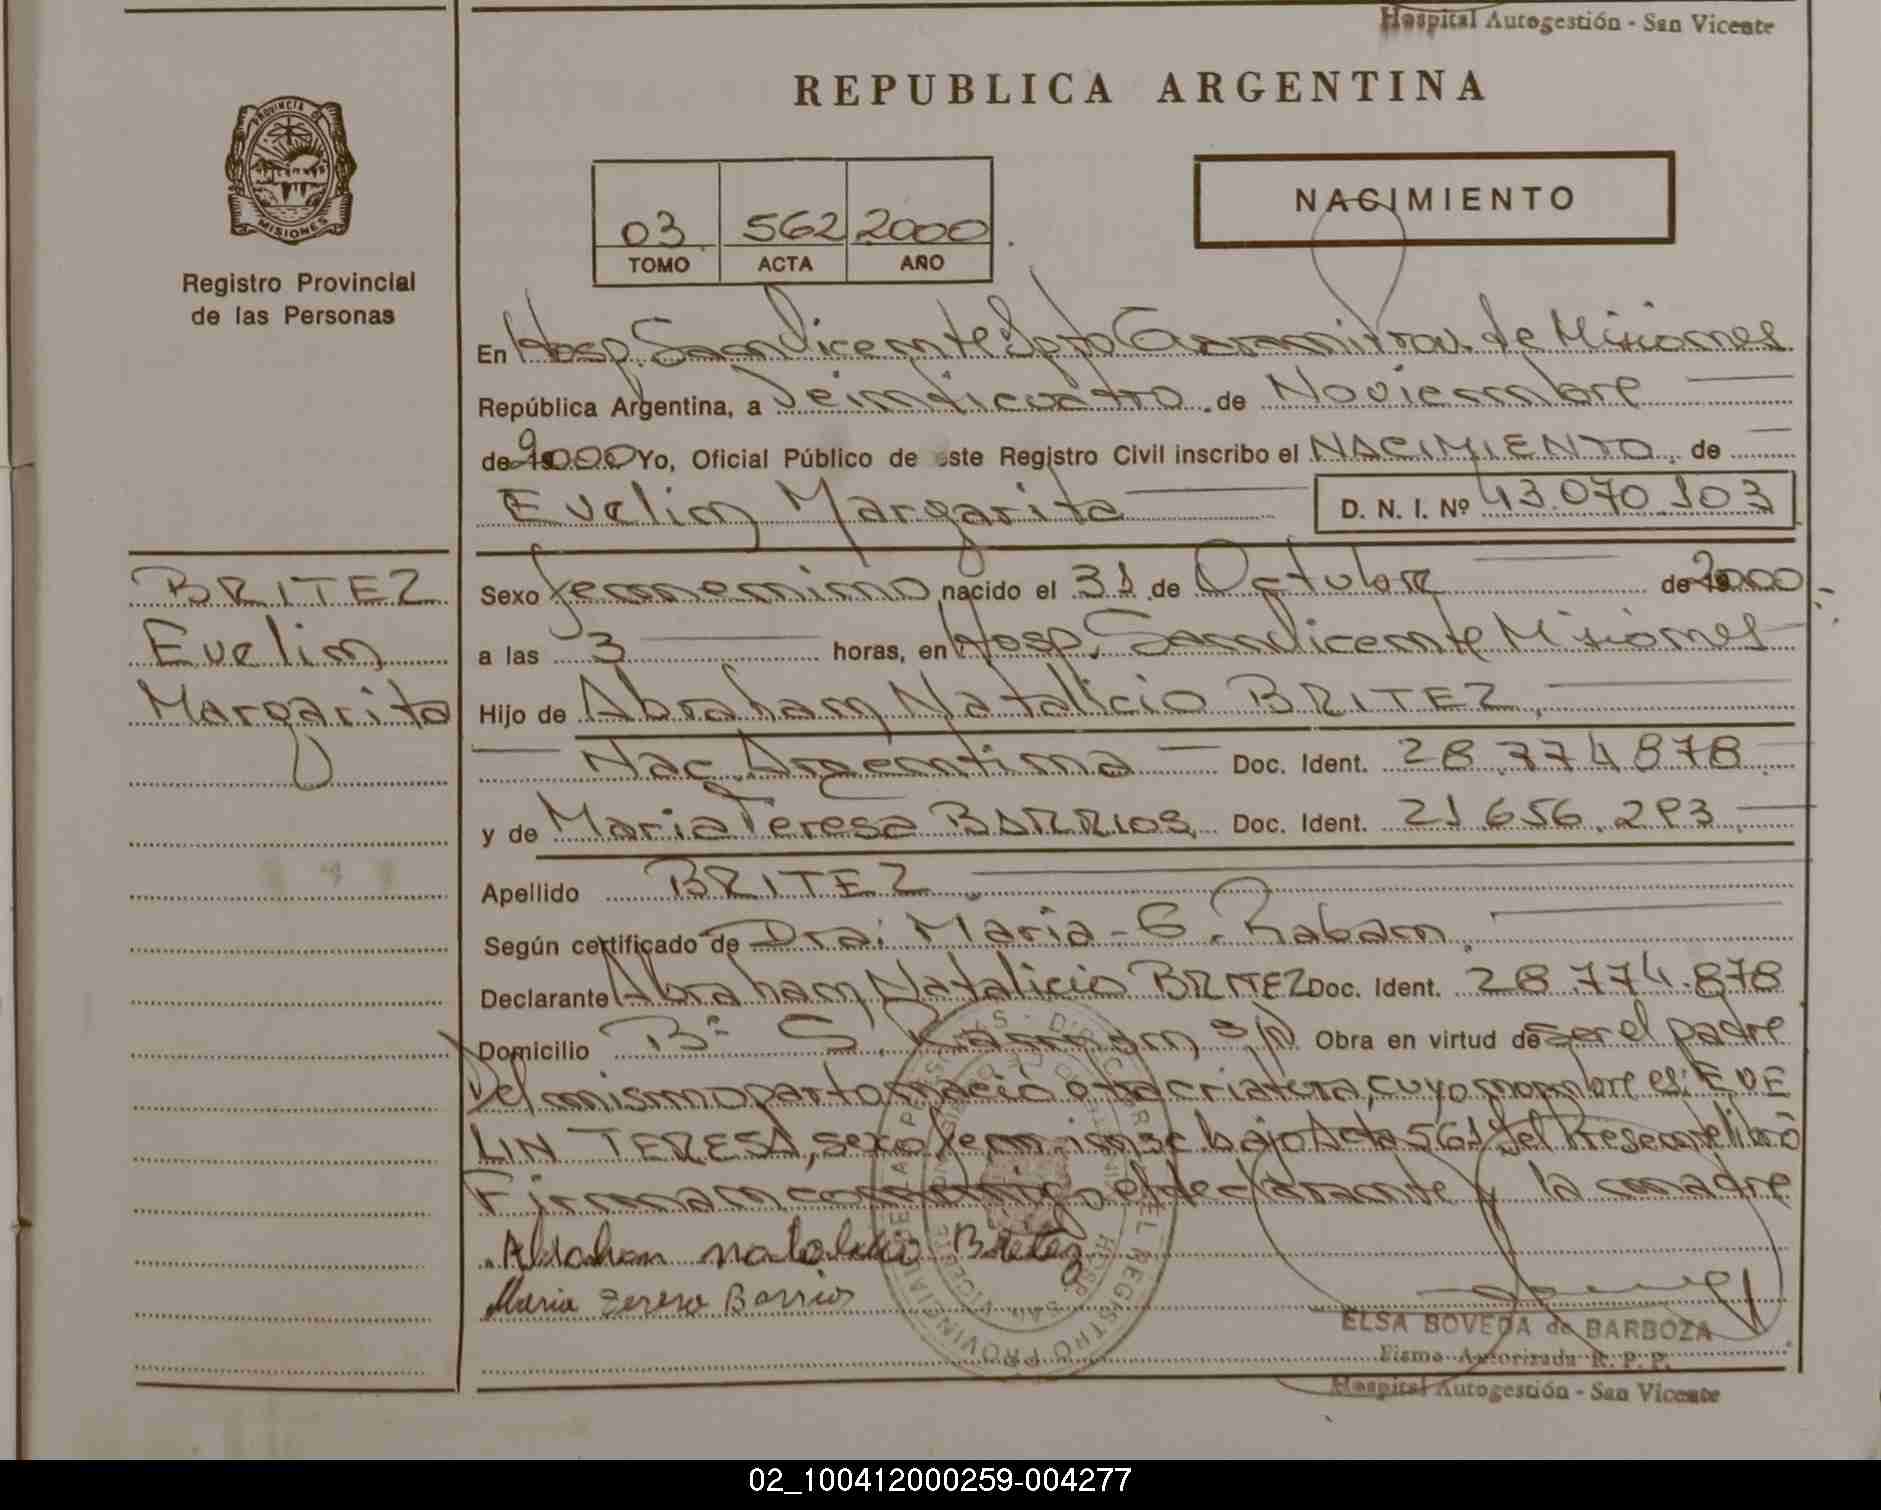 Hospital Autogestión - San Vicente
REPUBLICA ARGENTINA
PROVINCIA DE
MISIONES
Registro Provincial
de las Personas
NACIMIENTO
03 562 2000
TOMO ACTA AÑO
En Hosp. San Vicente Dpto Guaraní Prov. de Misiones
República Argentina, a Veinticuatro de Noviembre
de 2000 Yo, Oficial Público de este Registro Civil inscribo el NACIMIENTO de
Evelin Margarita D. N. I. Nº 43.070.103
BRITEZ
Evelin
Margarita
Sexo femenino nacido el 31 de Octubre de 2000
a las 3 horas, en Hosp. San Vicente Misiones
Hijo de Abraham Natalicio BRITEZ
Nac. Argentina Doc. Ident. 28.774.878
y de Maria Teresa BARRIOS Doc. Ident. 21.656.293
Apellido BRITEZ
Según certificado de Dra: Maria - G. Raban
Declarante Abraham Natalicio BRITEZ Doc. Ident. 28.774.878
Domicilio Bº S. Ramon s/n Obra en virtud de ser el padre
Del mismo parto nació otra criatura, cuyo nombre es: EVE
LIN TERESA, sexo fem. insc. bajo Acta 561 y el Presente libro
Firman conmigo el declarante y la madre
Abrahan natalicio Britez
Maria Teresa Barrios
ELSA BOVEDA de BARBOZA
Firma Autorizada R. P. P.
Hospital Autogestión - San Vicente
02_100412000259-004277